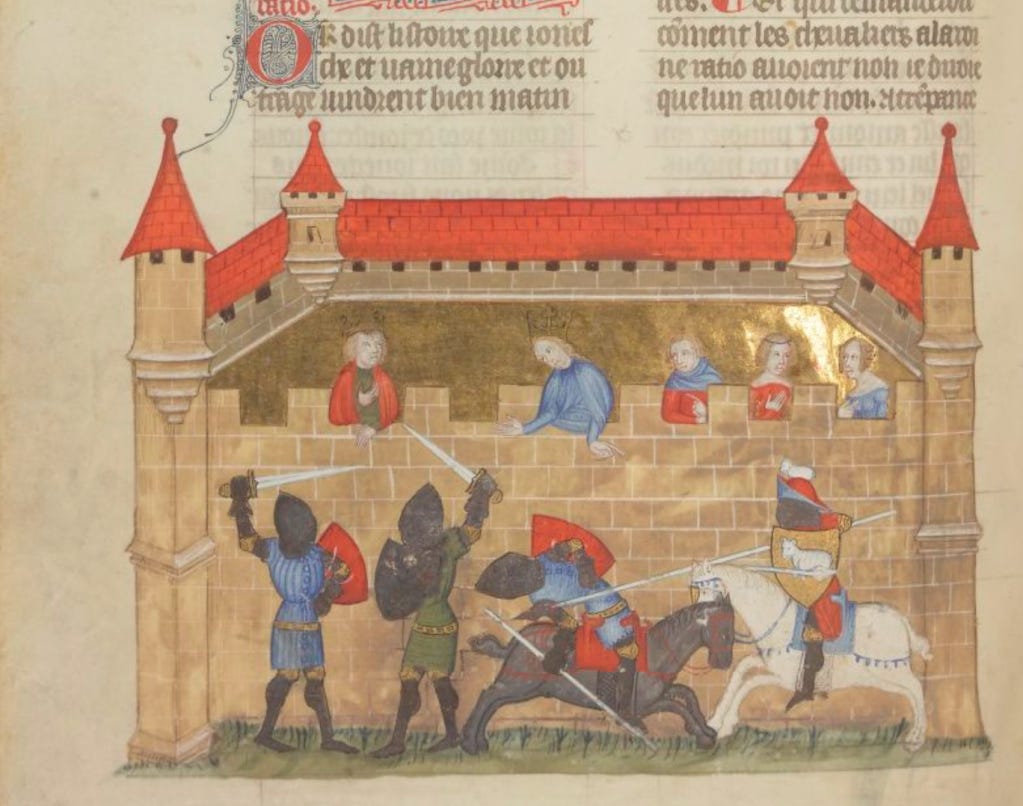 ratio.
OR dist listoire que iones
ce et uaine gloire et ou
trage uindrent bien matin
Et qui demandera
cōment les cheualiers alaroi
ne ratio auoient non ie diroie
quelun auoit non. Attrēpance